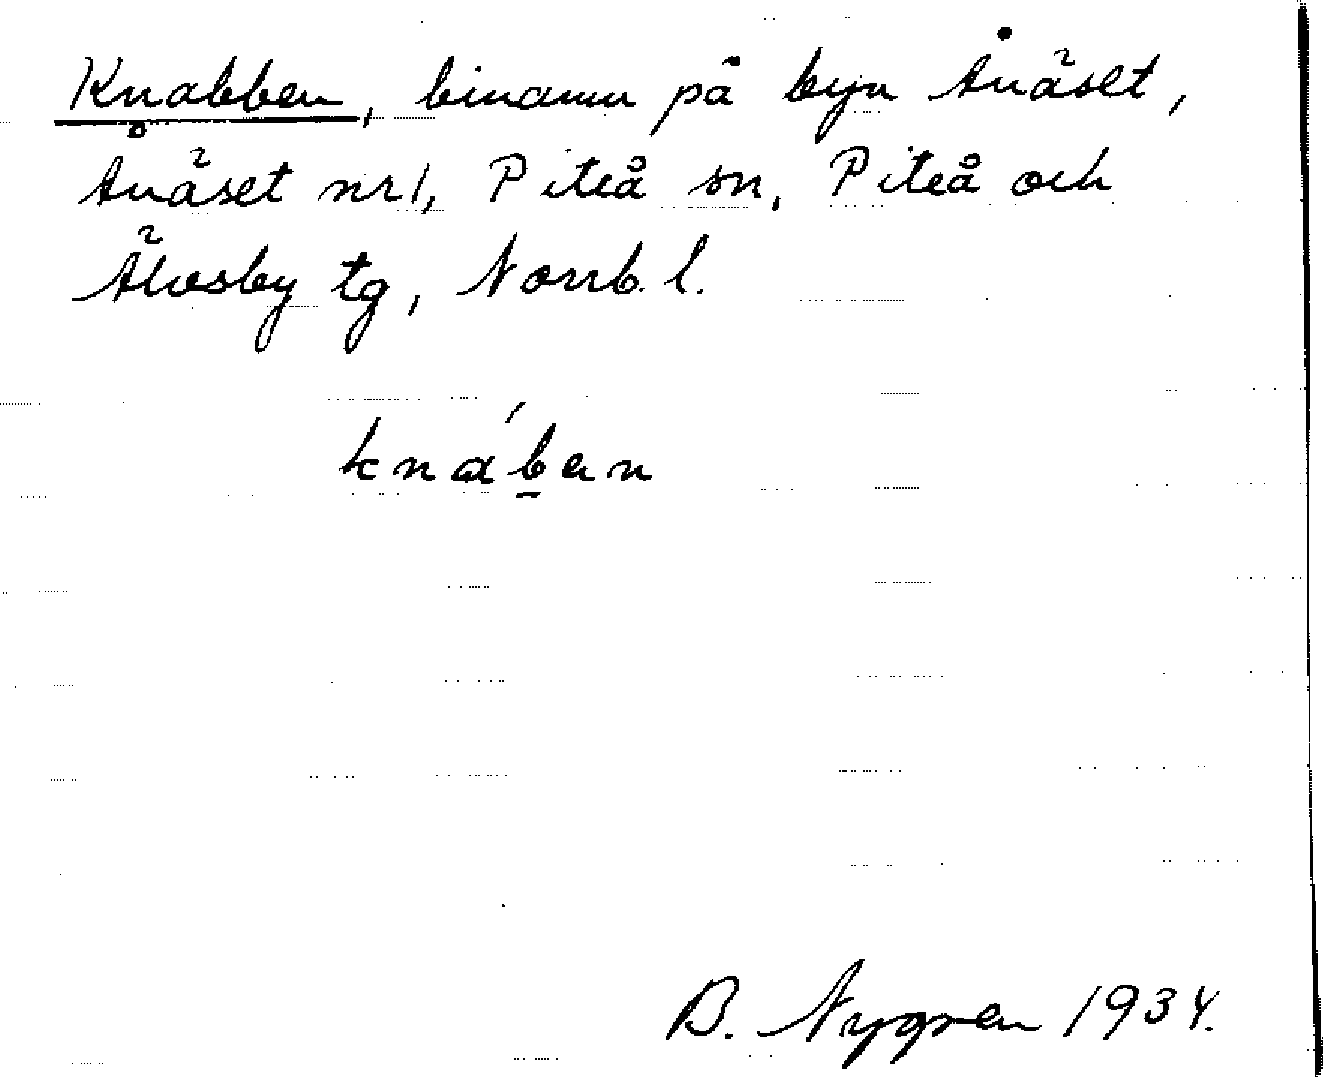 Knabben, binamn på byn Ånäset,
Ånäset nr 1, Piteå sn, Piteå och
Älvsby tg, Norrb. l.
knáben
B. Nygren 1934.